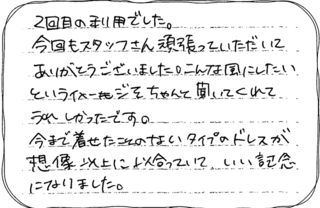 2回目の利用でした。
今回もスタッフさん頑張っていただいて
ありがとうございました。こんな風にしたい
というイメージをちゃんと聞いてくれて
うれしかったです。
今まで着せたことのないタイプのドレスが
想像以上に似合っていて、いい記念
になりました。